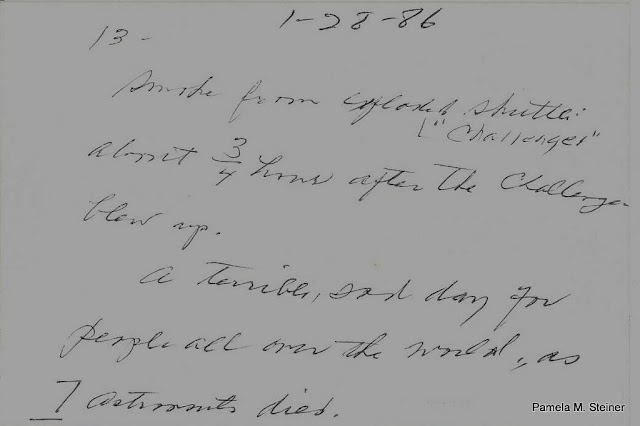 1-28-86
13-
Smoke from exploded shuttle:
"Challenger"
about 3/4 hour after the Challenger
blew up.
A terrible, sad day for
people all over the world, as
7 astronauts died.
Pamela M. Steiner